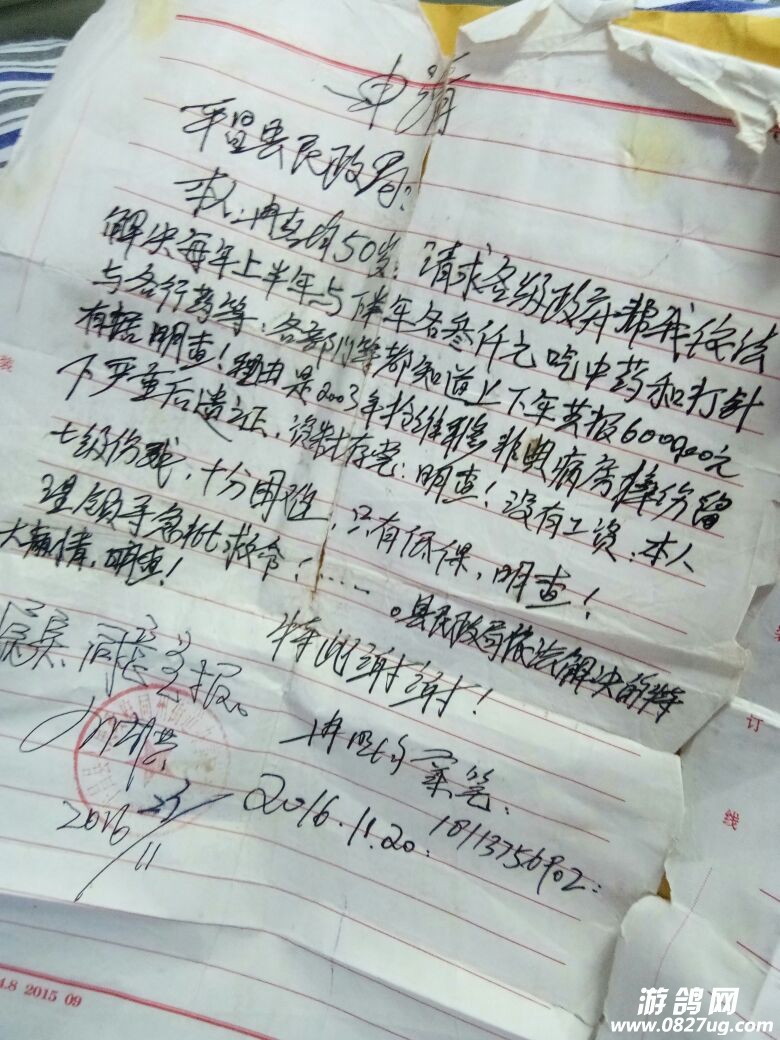 申请
平昌县民政局:
本人:冉 均50岁:请求各级政府帮我依法
解决每年上半年与下半年各叁仟元吃中药和打针
与各行药等、各部门等都知道上下年共报6000.00元
有据明查!理由是2003年抢维修非典病房摔伤留
下严重后遗证、资料存党:明查!没有工资、本人
七级伤残,十分困难,只有低保,明查!
望领导急批救命!……。县民政局依法解决
大 情,明查!
特此谢谢!
冉 均 笔:
2016.11.20:18113756902:
属实 同意 报。
2016 23/11
装
订
线
4.8 2015 09
游鸽网
www.0827ug.com